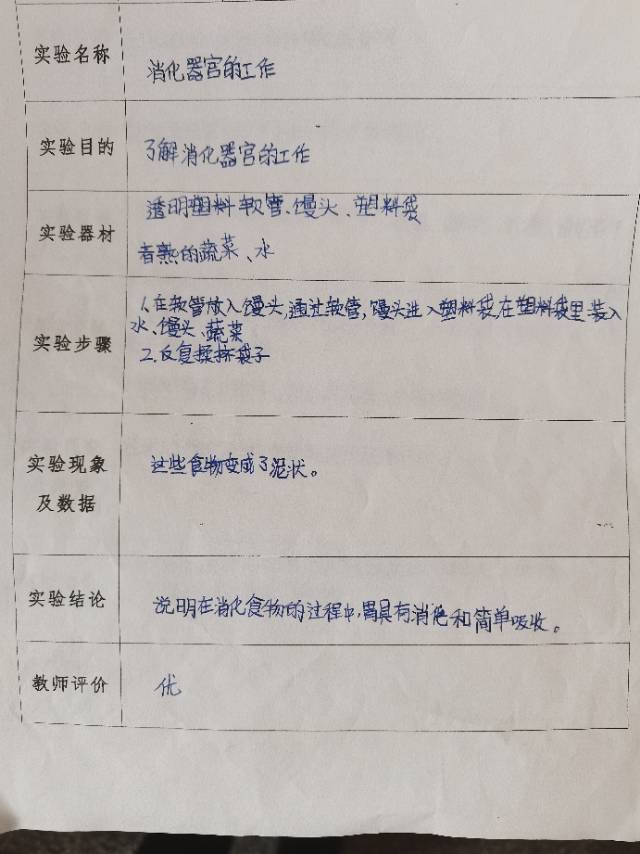 实验名称
消化器官的工作
实验目的
了解消化器官的工作
实验器材
透明塑料软管、馒头、塑料袋
煮熟的蔬菜、水
实验步骤
1.在软管放入馒头,通过软管,馒头进入塑料袋,在塑料袋里装入
水、馒头、蔬菜
2.反复揉挤袋子
实验现象
及数据
这些食物变成了泥状。
实验结论
说明在消化食物的过程中,胃具有消化和简单吸收。
教师评价
优